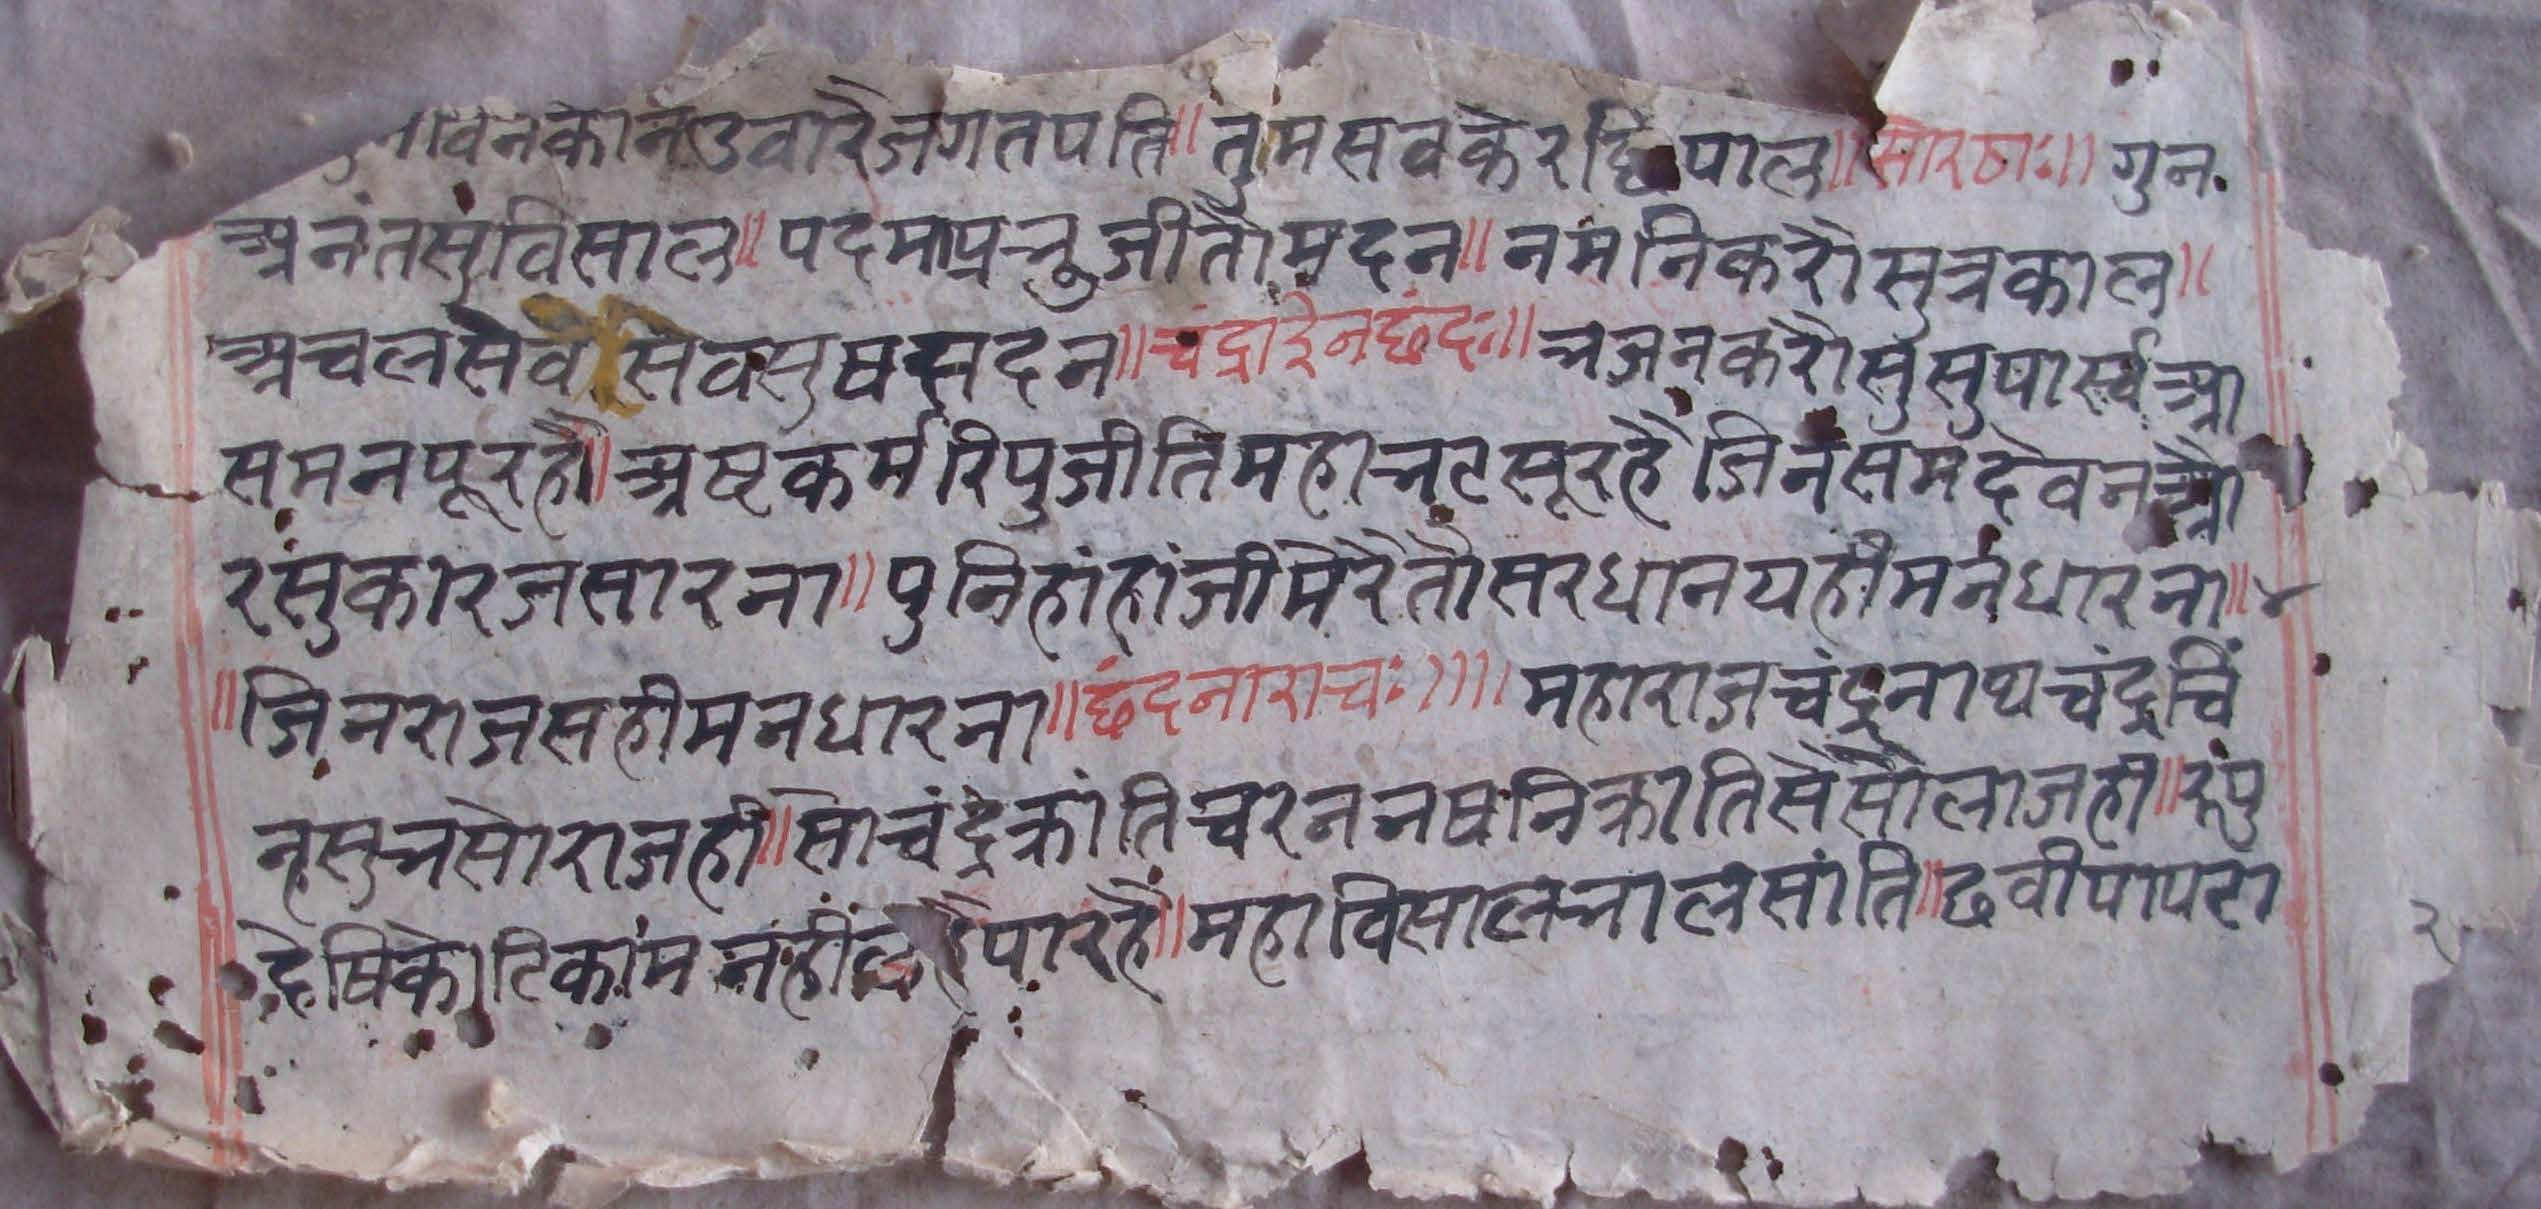 वनकोनउवारैजगतपति॥ तुमसवकेरछिपाल॥सोरठाः॥ गुन
अनंतसुविसाल॥ पदमाप्रभुजीतौमदन॥ नमनिकरौसुत्रकाल॥
अचलसेव सेवसुषसदन॥चंद्राईनछंदः॥ भजनकरौसुसुपार्स्वआ
समनपूरहौ॥अष्टकर्मरिपुजीतिमहाभटसूरहै जिनसमदेवनऔ
रसुकारजसारना॥ पुनिहांहांजीमेरैतौसरधानयहीमनधारना॥
॥जिनराजसहीमनधारना॥छंदनाराचः॥॥ महाराजचंद्रनाथचंद्रचिं
नसुभसोराजही॥सोचंद्रक्रांतिचरननषनिक्रातिसेसौलाजही॥रूपु
देषिकोटिकांमनहीं पारहै॥महाविसालभालसांति॥छवीपापटा
२